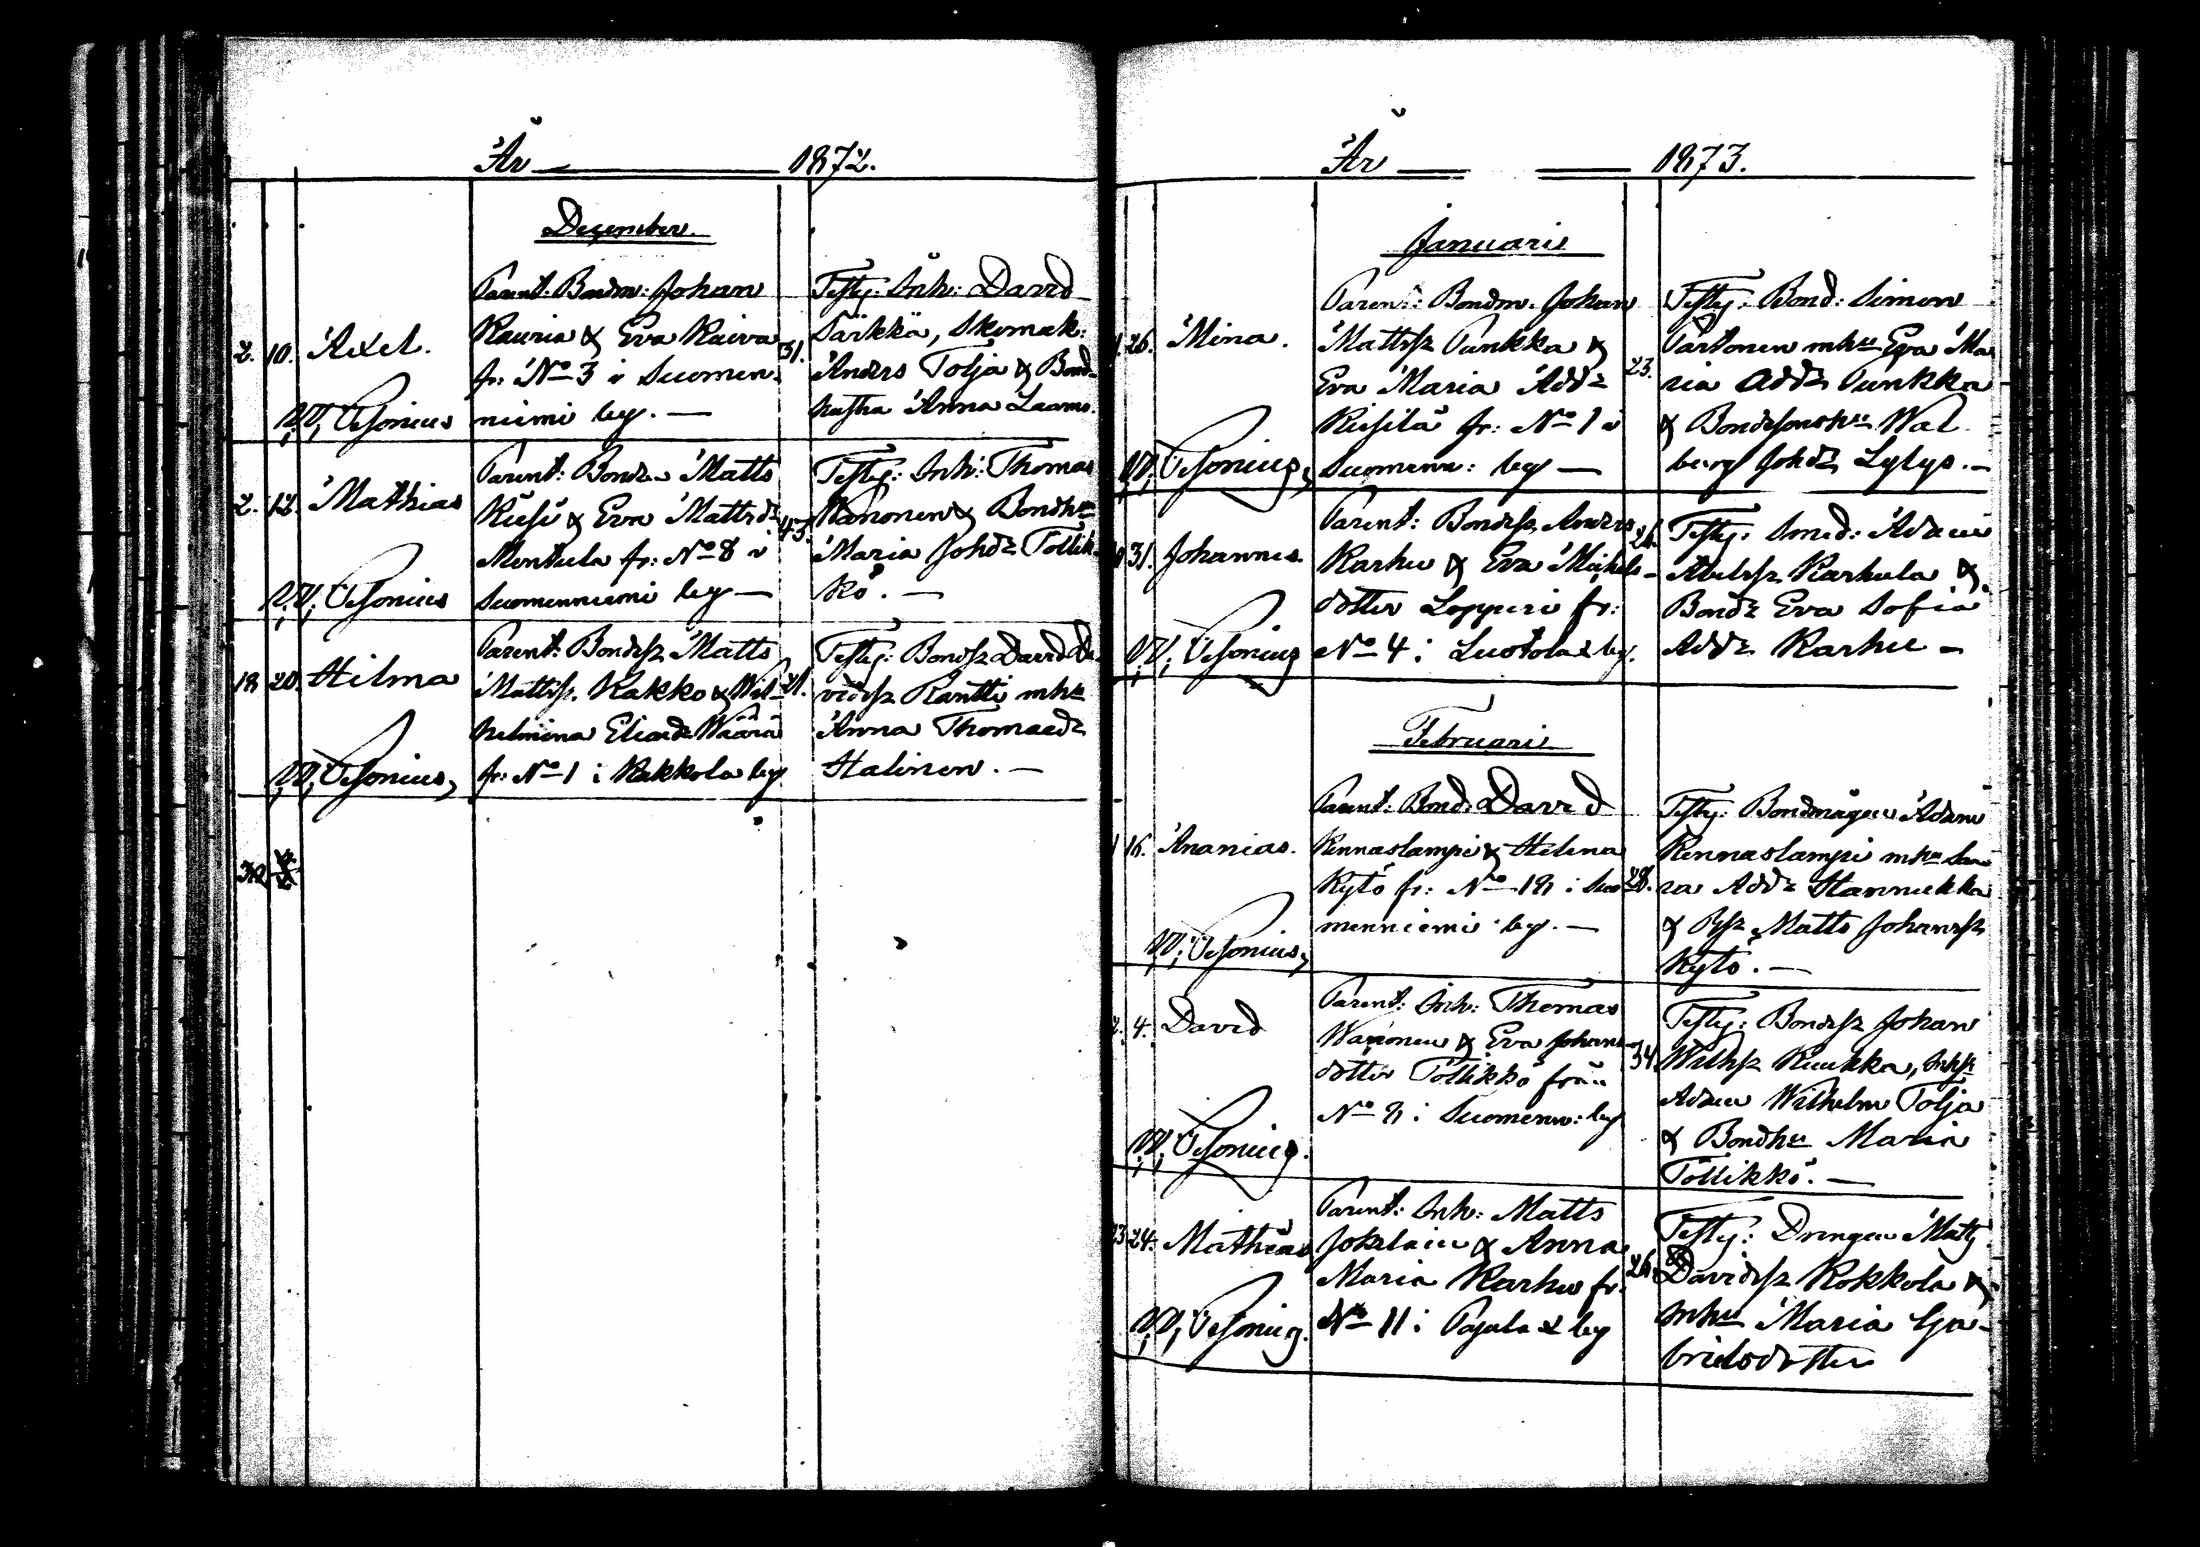 År 1872.
December.
2. 10. Axel.
Parent: Bondm: Johan
Kauria & Eva Kaiva
fr: No 3 i Suomen-
niemi by. —
31.
Testy: Inh: David
Särkkä, Skomak:
Anders Tolja & Bond-
hustra Anna Laamo.
2. 12. Mathias
Parent: Bonde Matts
Kiesi & Eva Mattsdr
Montula fr: No 8 i
Suomenniemi by —
43.
Testy: Inh: Thomas
Wanonen & Bondhu
Maria Johdr Tollik-
kö. —
18 20. Hilma
Parent: Bondess Matts
Mattss. Kakko & Wil-
helmina Eliasdr Wäärä
fr: No 1 i Kakkola by
21.
Testy: Bondss David Da-
vidss Rantti mhu
Anna Thomasdr
Halinen. —
År 1873.
Januarii
26. Mina.
Parent: Bondm. Johan
Mattss Punkka &
Eva Maria Addr
Kiesilä fr: No 1 i
Suomenn: by —
23.
Testy: Bond: Simon
Partonen mhu Eva Ma-
ria Addr Punkka
& Bondesonshu Wal-
borg Johdr Lylys. —
31. Johannes.
Parent: Bondess. Anders
Karhu & Eva Mickels-
dotter Lopperi fr:
No 4 i Luotola by.
26.
Testy: Smed: Adam
Abelss Karhula &
Bondr Eva Sofia
Addr Karhu —
Februarii
16. Ananias.
Parent: Bond. David
Kennaslampi & Helena
Kytö fr: No 18 i Suo-
menniemi by. —
28.
Testy: Bondmågen Adam
Kennaslampi mhu Sa-
ra Addr Hannukka
& Matts Johanss
Kytö. —
2. 4. David
Parent: Inh: Thomas
Wanonen & Eva Johans-
dotter Töllikkö från
No 8 i Suomenn: by
34.
Testy: Bondess Johan
Wilhss Kuukka, Inhss
Adam Wilhelm Tolja
& Bondhu Maria
Töllikkö. —
23 24. Mathias
Parent: Inh: Matts
Jokelain & Anna
Maria Karhu fr.
No 11 i Pajula by
26.
Testy: Drengen Matts
Davidss Kokkola &
mhu Maria Ga-
brielsdotter